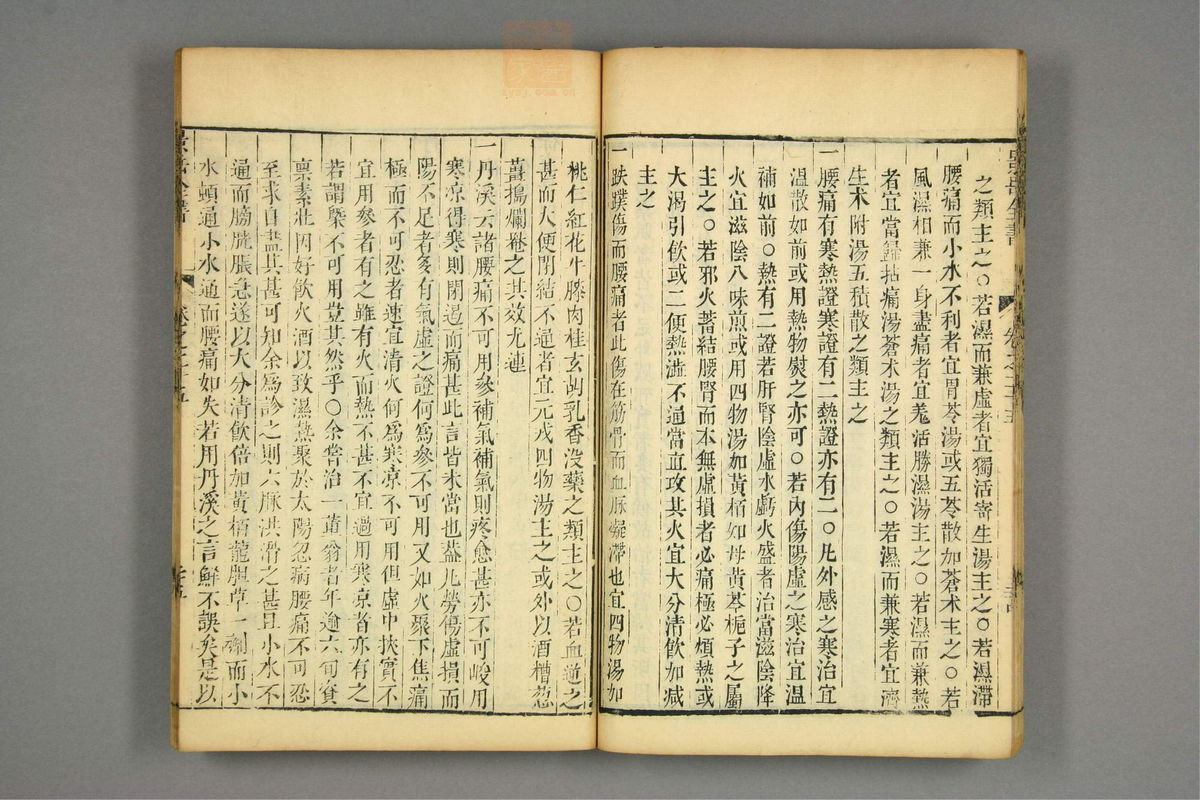 之類主之〇若濕而兼虛者宜獨活寄生湯主之〇若濕滯
腰痛而小水不利者宜胃苓湯或五苓散加蒼术主之〇若
風濕相兼一身盡痛者宜羗活勝濕湯主之〇若濕而兼熱
者宜當歸拈痛湯蒼术湯之類主之〇若濕而兼寒者宜濟
生术附湯五積散之類主之
一腰痛有寒熱證寒證有二熱證亦有二〇凡外感之寒治宜
温散如前或用熱物熨之亦可〇若內傷陽虛之寒治宜温
補如前〇熱有二證若肝腎陰虛水虧火盛者治當滋陰降
火宜滋陰八味煎或用四物湯加黃栢知母黃芩梔子之屬
主之〇若邪火蓄結腰腎而本無虛損者必痛極必煩熱或
大渴引飲或二便熱澁不通當直攻其火宜大分清飲加减
主之
一跌蹼傷而腰痛者此傷在筋骨而血脉凝滯也宜四物湯加
桃仁紅花牛膝肉桂玄胡乳香没藥之類主之〇若血逆之
甚而大便閉結不通者宜元戎四物湯主之或外以酒糟葱
薑搗爛罨之其效尤速
一丹溪云諸腰痛不可用參補氣補氣則疼愈甚亦不可峻用
寒凉得寒則閉遏而痛甚此言皆未當也葢凡勞傷虛損而
陽不足者多有氣虛之證何爲參不可用又如火聚下焦痛
極而不可忍者速宜清火何爲寒凉不可用但虛中挾實不
宜用參者有之雖有火而熱不甚不宜過用寒凉者亦有之
若謂槩不可用豈其然乎〇余嘗治一董翁者年逾六旬資
禀素壯因好飲火酒以致濕熱聚於太陽忽病腰痛不可忍
至求自盡其甚可知余爲診之則六脉洪滑之甚且小水不
通而膀胱脹急遂以大分清飲倍加黃栢龍胆草一劑而小
水頓通小水通而腰痛如失若用丹溪之言鮮不誤矣是以